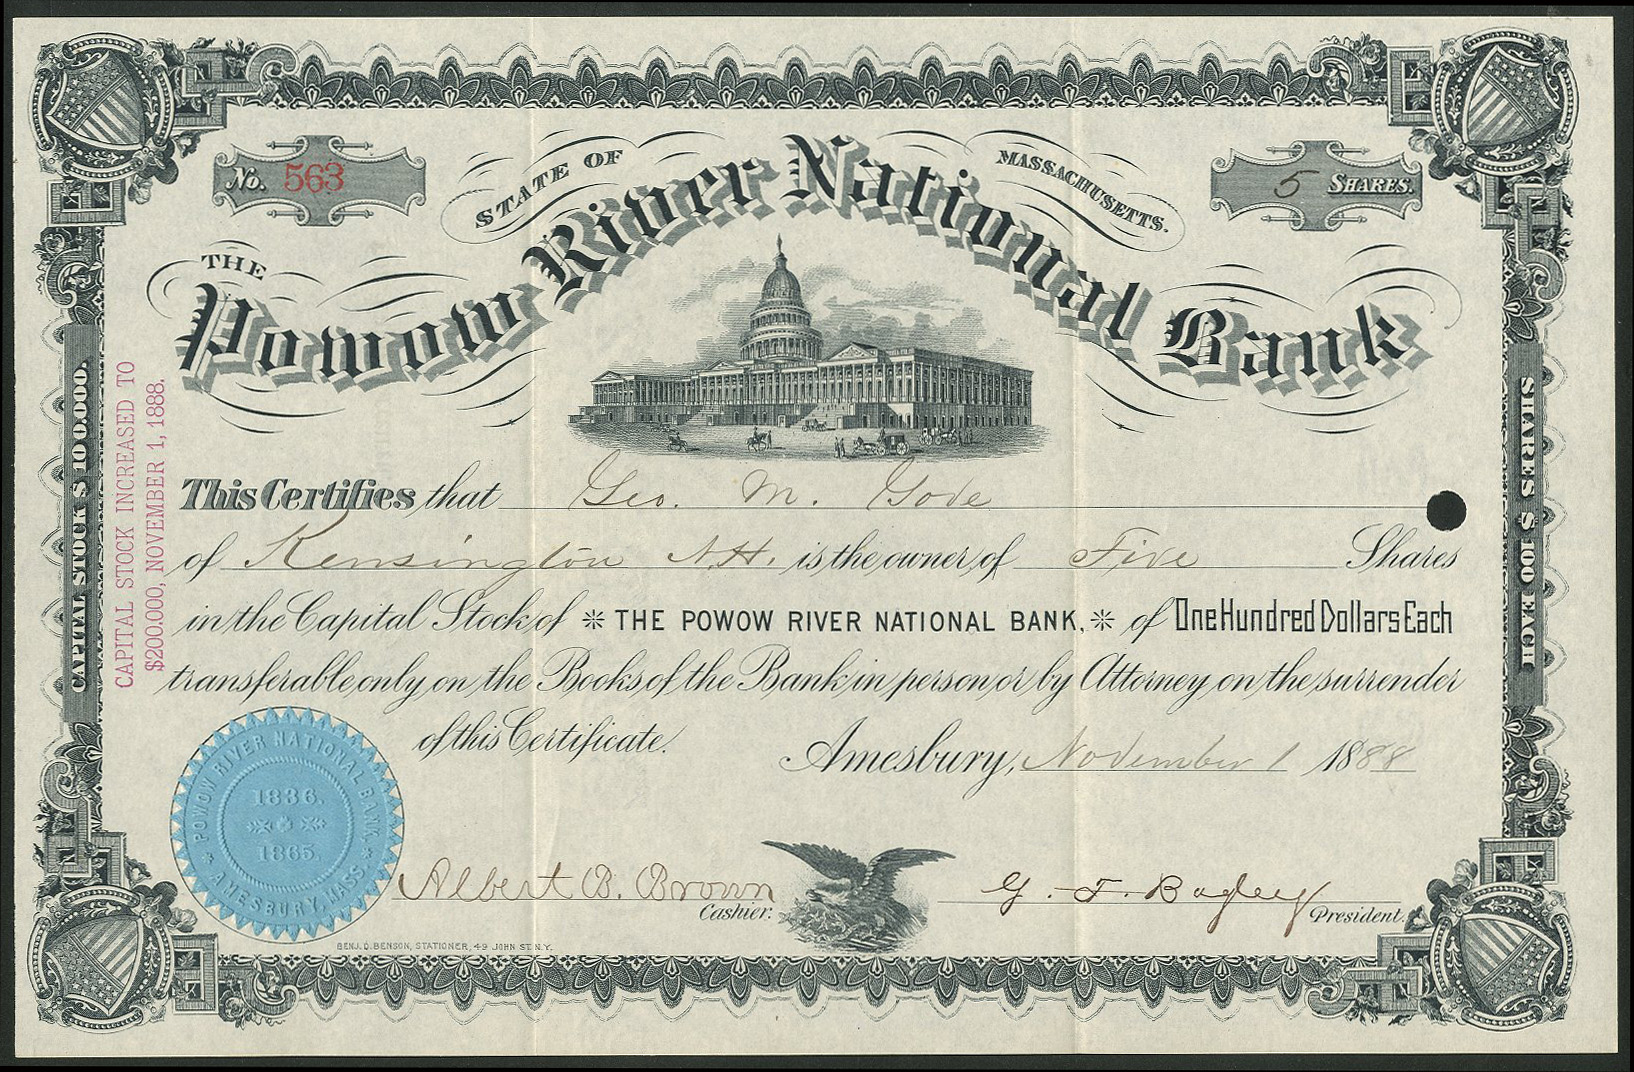 No. 563
STATE OF MASSACHUSETTS.
5 SHARES.
THE
Powow River National Bank
CAPITAL STOCK $100.000.
CAPITAL STOCK INCREASED TO
$200.000, NOVEMBER 1, 1888.
SHARES $100 EACH
This Certifies that Geo. M. Gove
of Kensington N.H. is the owner of Five Shares
in the Capital Stock of THE POWOW RIVER NATIONAL BANK, of One Hundred Dollars Each
transferable only on the Books of the Bank in person or by Attorney on the surrender
of this Certificate.
Amesbury, November 1 1888
POWOW RIVER NATIONAL BANK
1836.
1865.
AMESBURY, MASS.
Albert B. Brown
Cashier.
G. F. Bagley President.
BENJ. D. BENSON, STATIONER, 49 JOHN ST. N.Y.